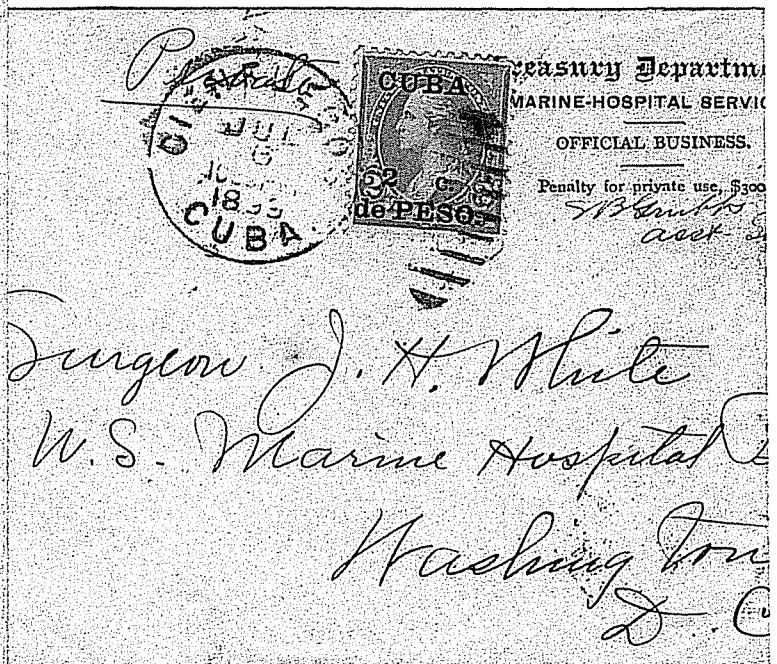 Please
CIENFUEGOS
JUL
6
1899
CUBA
CUBA
2 c.
de PESO.
Treasury Departm
MARINE-HOSPITAL SERVIC
OFFICIAL BUSINESS.
Penalty for private use, $300
S B Grubbs
asst
Surgeon J. H. White
U.S. Marine Hospital
Washington
D. C